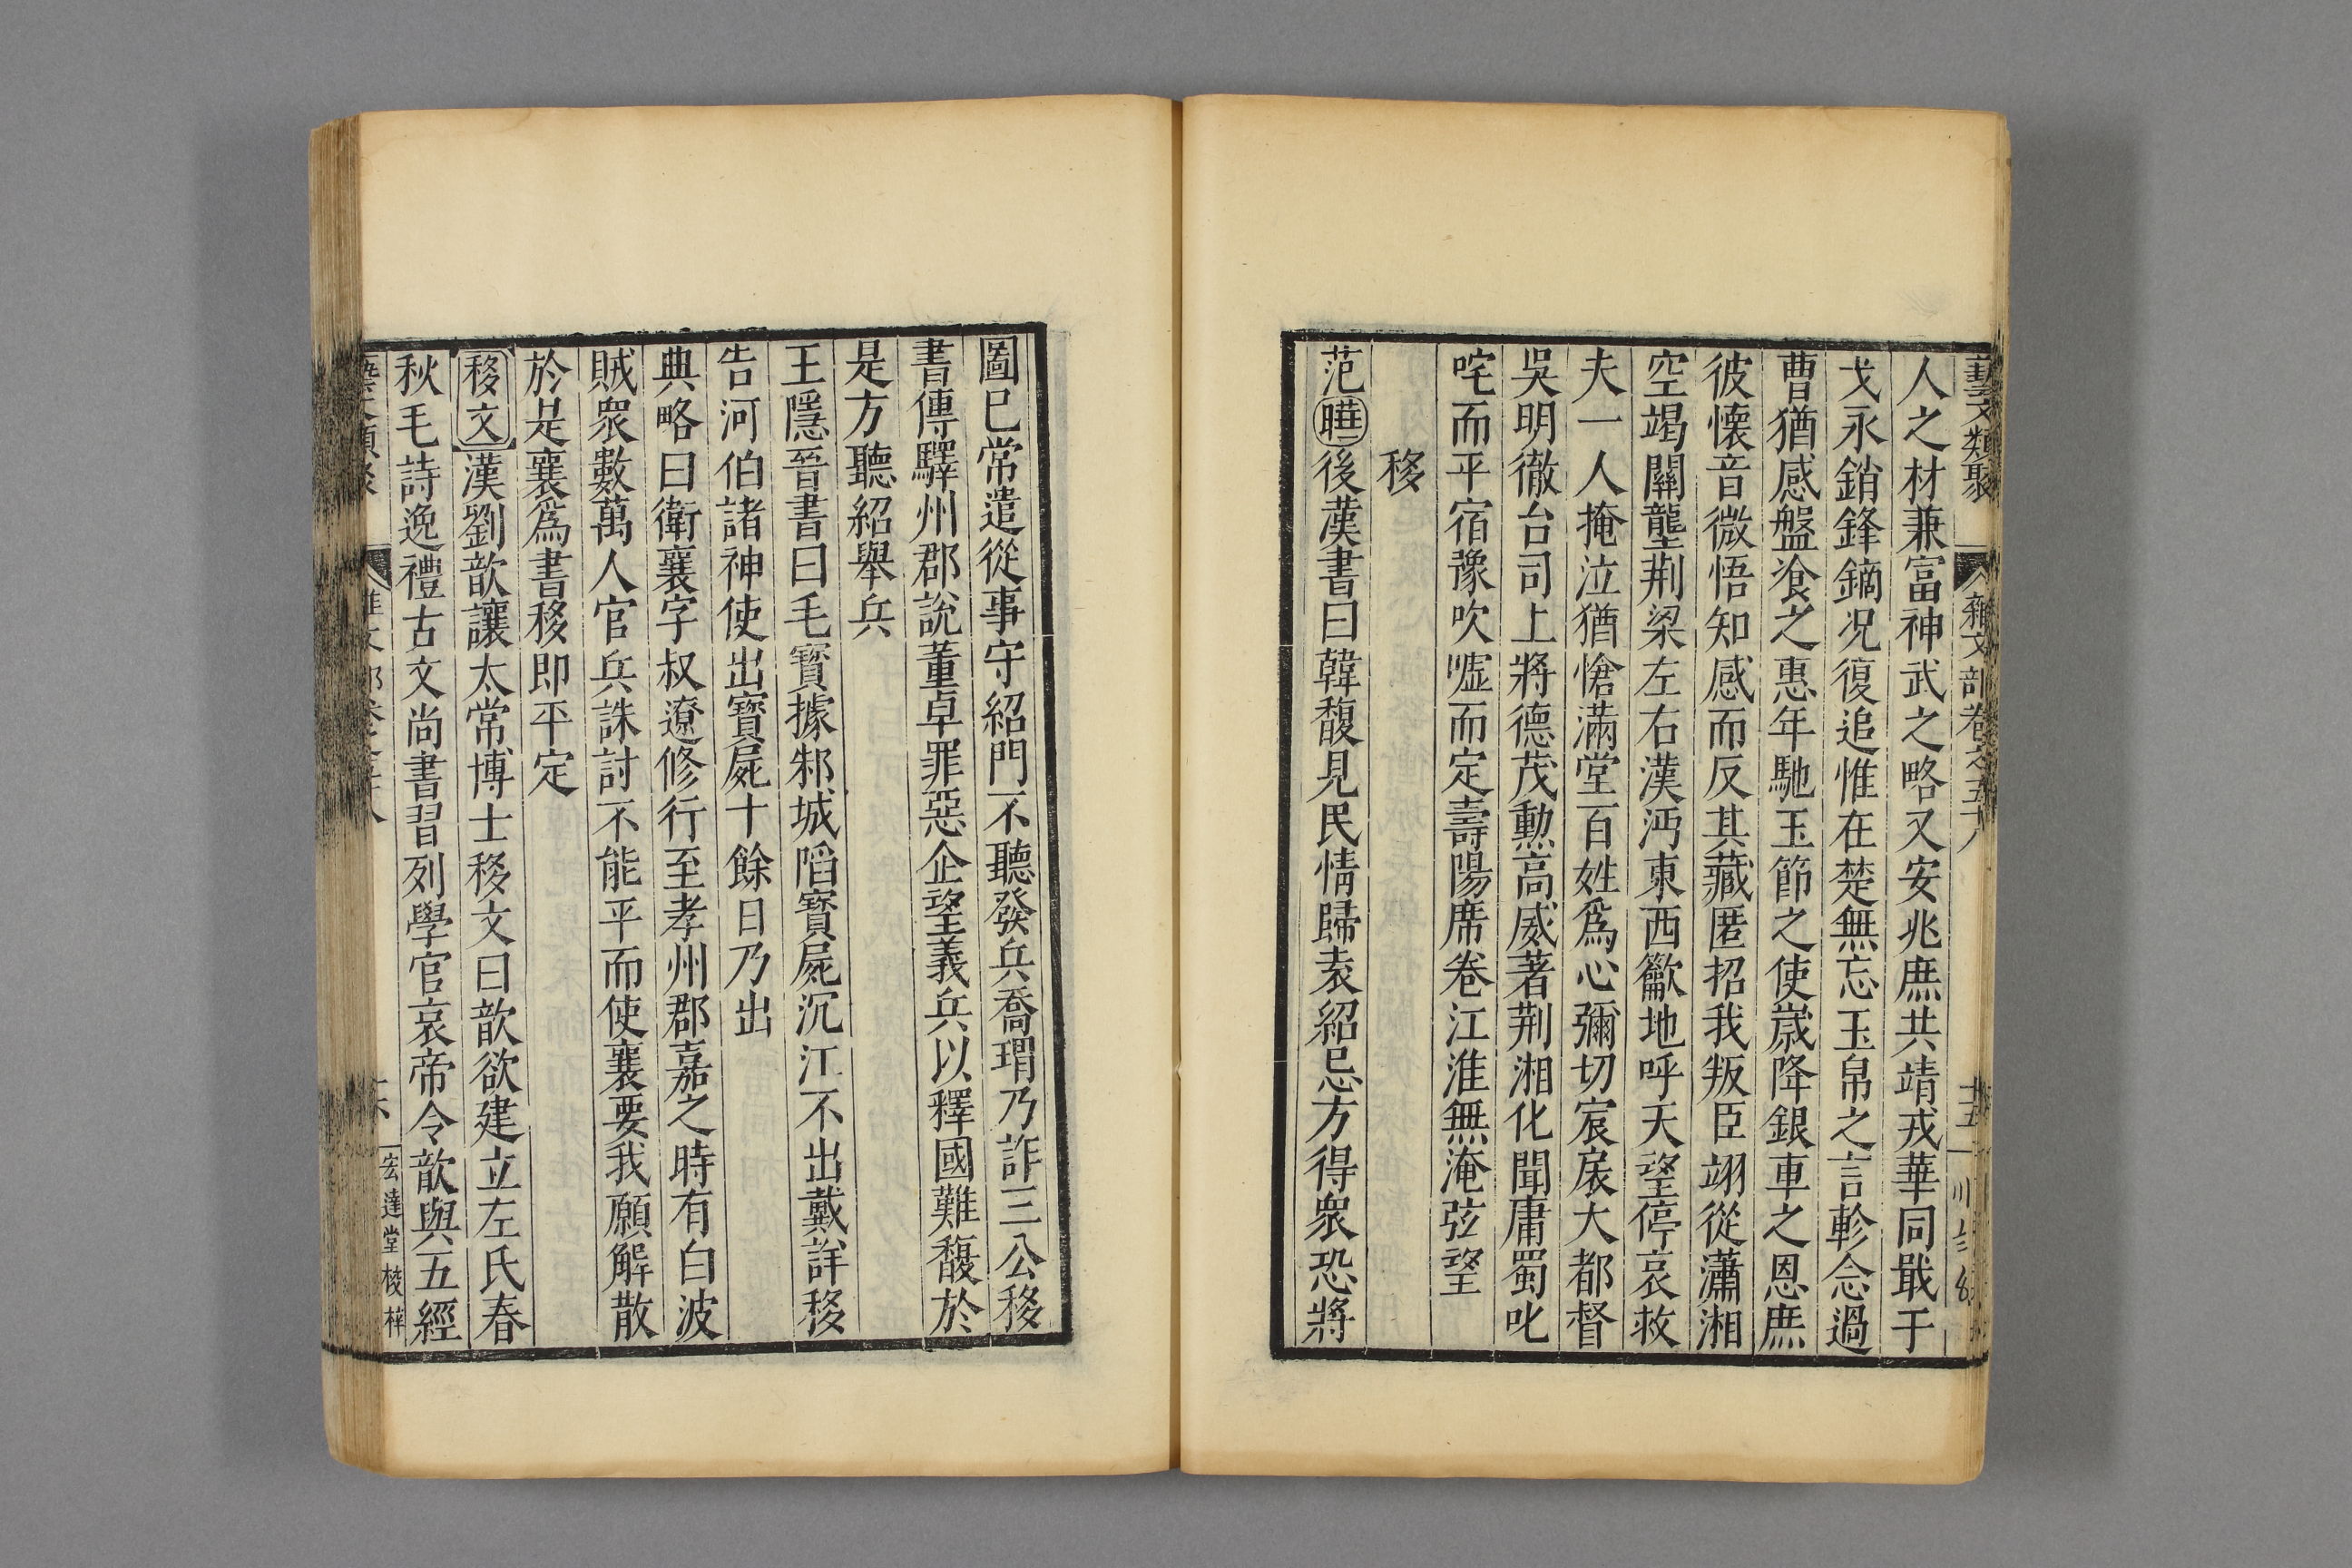 藝文類聚 雜文部卷之五十八 十五
人之材兼富神武之略又安兆庶共靖戎華同戢干
戈永銷鋒鏑况復追惟在楚無忘玉帛之言軫念過
曹猶感盤飡之惠年馳玉節之使嵗降銀車之恩庶
彼懐音微悟知感而反其藏匿招我叛臣翊從瀟湘
空竭關壟荆梁左右漢沔東西籲地呼天望停哀救
夫一人掩泣猶愴滿堂百姓爲心彌切宸扆大都督
吳明徹台司上將德茂勲高威著荆湘化聞庸蜀叱
咤而平宿豫吹嘘而定壽陽席卷江淮無淹弦望
移
范曄後漢書曰韓馥見民情歸袁紹忌方得衆恐將
圖巳常遣從事守紹門不聽發兵喬瑁乃詐三公移
書傳驛州郡說董卓罪惡企望義兵以釋國難馥於
是方聽紹舉兵
王隱晉書曰毛寳據邾城陷寳屍沉江不出戴詳移
告河伯諸神使出寳屍十餘日乃出
典略曰衛襄字叔遼修行至孝州郡嘉之時有白波
賊衆數萬人官兵誅討不能平而使襄要我願解散
於是襄爲書移即平定
移文漢劉歆讓太常博士移文曰歆欲建立左氏春
秋毛詩逸禮古文尚書習列學官哀帝令歆與五經
宏達堂校梓